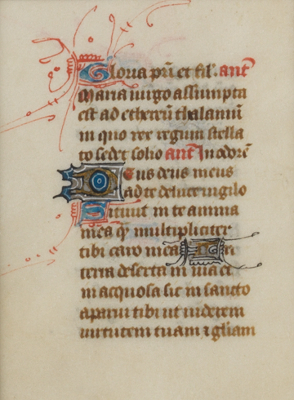 Gloria pri et fil. ant
Maria uirgo assumpta
est ad ethereu thalamu
in quo rex regum stella
to sedet solio ant In odore
Deus deus meus
ad te deluce uigilo
Sitiuit in te anima
mea q multipliciter
tibi caro mea In
terra deserta in uia et
in aquosa sic in sancto
aparui tibi ut uiderem
uirtutem tuam ⁊ gliam